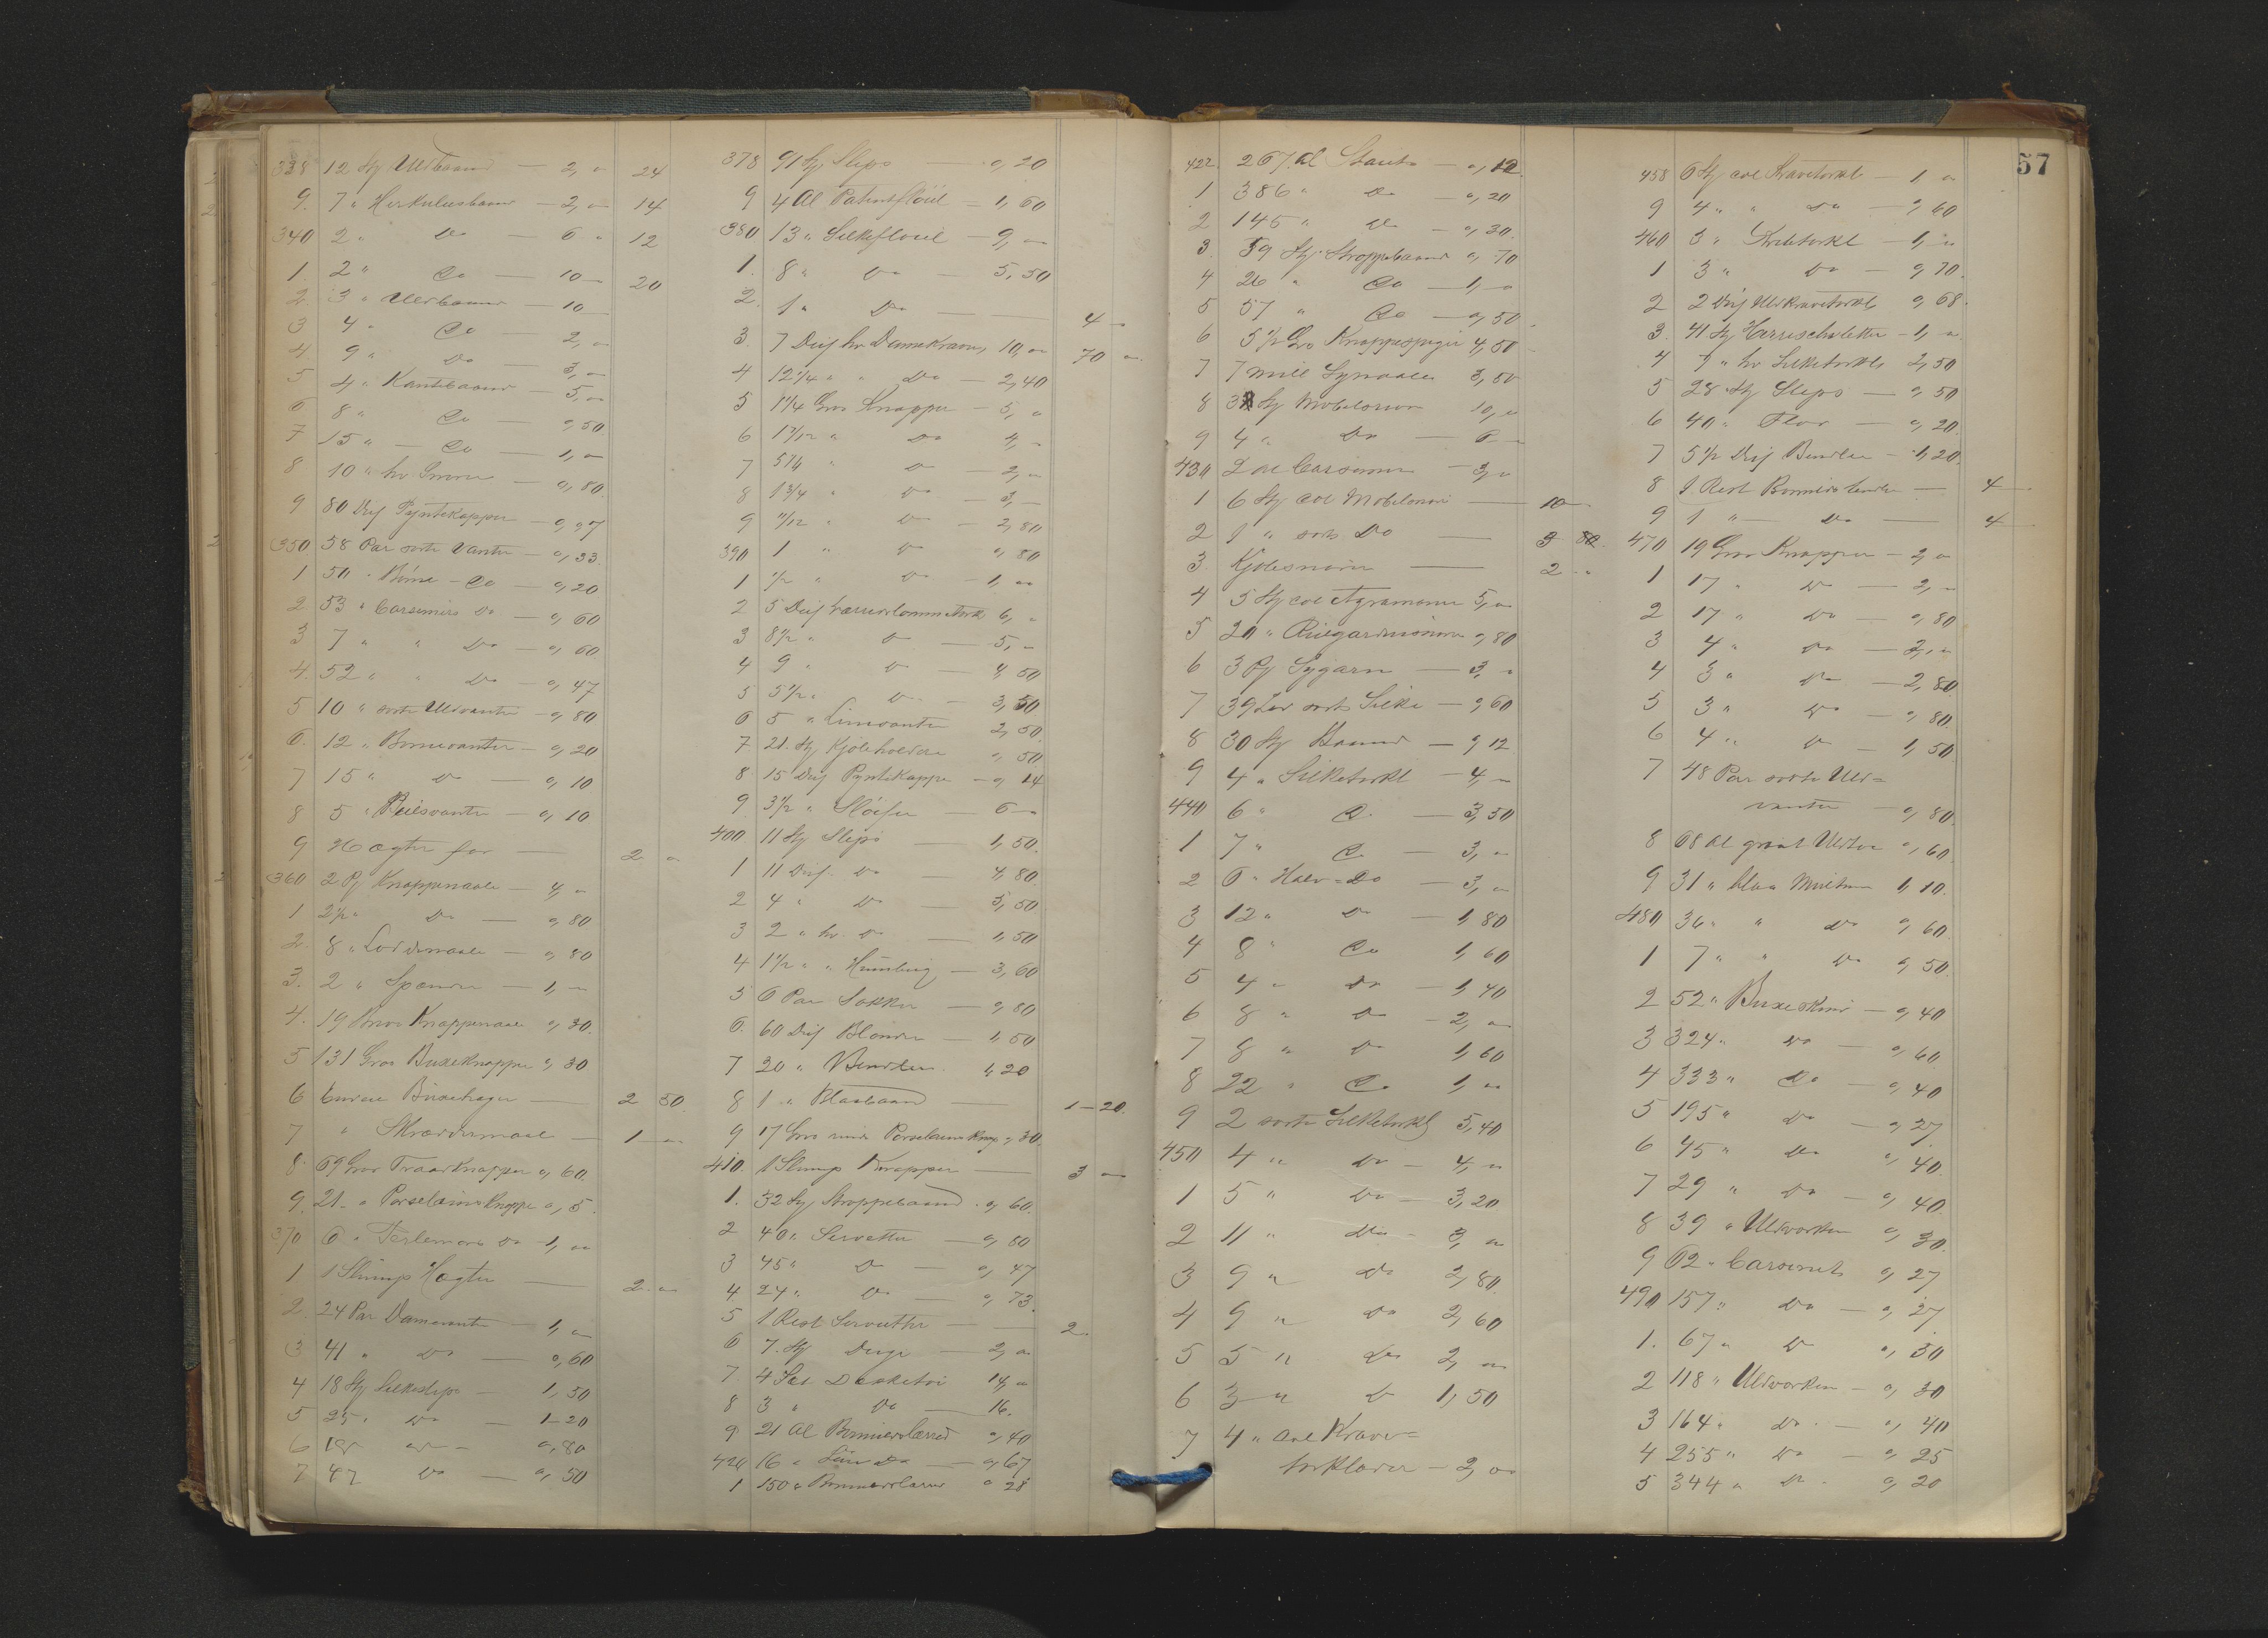 338 12 Stj Uldbaand — 2, " 24
9. 7 " Herkulesbaand — 2, " 14
340 2 " Do — 6 " 12
1. 2 " Do — 10 — 20
2. 3 " Uldbaand — 10
3 4 " Do — 2, "
4. 9 " Do — 3, "
5 4 " Kantebaand — 5, "
6 8 " Do — ", 50
7 15 " — Do — 1, "
8 10 " hv Snore — ", 80
9 80 Dus Pyntekapper — ",
350 58 Par sorte Vanter — ", 33
1 50 " Börne — Do — ", 20
2 53 " Carsimirs Do — ", 60
3 7 " " Do — ", 60
4. 52 " " Do — ", 47
5 10 " sorte Uldvanter — ", 80
6. 12 " Börnevanter — ", 20
7 15 " Do — ", 10
8 5 " Pulsvanter — ", 10
9 Hægter for — 2 "
360 2 Pj Knappenaale — 4, "
1 2 1/2 " Do — ", 80
2. 8 " — ", 80
3. 2 " Spænder — 1, "
4. 19 Knappenaale ", 30.
5 131 Gros Buxeknapper ", 30
6 Buxehager — 2 50.
7 " Skrædermaal — 1 "
8. 69 Gros Traadknapper ", 60.
9. 21 " Porselænsknapper ", 5.
370 6 " Perlemors Do 1, "
1 1 Slump Hægter — 2 "
2. 24 Par Damevanter — 1, "
3 41 " Do — ", 60
4 18 Stj Silkeslips — 1, 50
5 25 " Do — 1-20
6 Do — ", 80
7 47 Do — ", 50
378 91 Stj Slips — ", 20
9 4 Al Patentflöiel — 1, 60
380 13 " Silkeflöiel — 9, "
1. 8 " Do — 5, 50
2. 1 " Do — 4 —
3. 7 Dus hv Damekraver, 10, " 70 "
4 12 1/4 " " Do — 2, 40
5 1 1/4 Gros Knapper — 5, "
6 1 3/12 " Do 4, "
7 5 1/4 " Do — 2, "
8 1 3/4 " Do — 3, "
9 11/12 " Do — 2, 80
390 1 " Do ", 80
1 1/2 " Do — 1, "
2 5 Dus 6, "
3 8 1/2 " Do — 5, "
4 9 " Do — 4, 50
5 5 1/2 " Do — 3, 50
6 5 " Linvanter 2, 50
7 21. Stj Kjoleholdere ", 50
8 15 Dus Pyntekapper — ", 14
9 3 1/2 " Slöifer — 6 —
400 11 Stj Slips — 1, 50.
1 11 Dus. Do — 4, 80.
2 4 " Do — 5, 50
3 2 " hv Do — 1, 50
4 1 1/2 " " Humbug — 3, 60
5 6 Par Sokker — ", 80
6. 60 Dus Blonder — 1, 50
7 20 " Bendler 1, 20
8 1 " — 1-20.
9 17 Gros Porselænsknap. ", 30.
410. 1 Slump Knapper — 3 "
1. 32 Stj Stroppebaand. ", 60.
2 40 " Servetter — ", 80
3 45 " Do — ", 47
4 24 " Do — ", 73.
5 1 Rest Servetter — 2.
6 7. Stj Duge — 2, "
7. 4 Sæt Dækketöi 14, "
8 3 " Do — 16.
9 21 Al Bomuldslærred ", 40
420 16 " Lin Do — ", 67
1 150 " Bomuldslærred " 28
422. 267 Al Stouts — ", 12
1 386 " Do — ", 20
2 145 " Do — ", 30.
3. 59 Stj. Stroppebaand ", 70
4 26 " Do — 1, "
5 57 " Do — ", 50.
6 5 1/2 Gro Knappespiger 4, 50
7 7 mill Synaale 3, 50
8 Stj Mobelsnor 10, "
9 4 " Do — 6 —
430 2 — 3, "
1 6 Stj col Mobelsnor — 10 —
2 1 " sort Do — 3 80.
3. Kjolesnorer — 2 "
4 5 Stj col Agramaner 5, "
5 20 " Rulgardinsnore ", 80
6 3 Pj Sygarn — 3, "
7 39 Lod sort Silke — ", 60
8 30 Stj Baand — ", 12
9 4 " Silketörkl — 4, "
440 6 " Do — 3, 50
1 7 " Do — 3, "
2 6 " Halv = Do — 3, "
3 12 " Do — 1, 80
4 8 " Do 1, 60
5 4 " Do — 1, 40
6 8 " Do — 2, "
7 8 " Do 1, 60
8 22 " Do 1, "
9 2 sorte Silketörkl 5, 40
450 4 " Do — 4, "
1 5 " Do — 3, 20
2 11 " Do — 3, "
3 9 " Do 2, 80.
4 9 " Do 2, 60
5 5 " Do 2, "
6 3 " Do 1, 50
7 4 " col Krave =
törklæder — 2, "
458 6 Stj col Kravetörkl — 1, "
9 4 " " Do — ", 60
460 3 " törkl — 1, "
1 3 " Do — ", 70.
2 2 Dus Uldkravetörkl ", 68.
3. 41 Stj Herreschaletter — 1, "
4 7 " hv Silketörkl 2, 50
5 28 Stj Slips — ", 50
6 40 " Flor — ", 20.
7 5 1/2 Dus Bendler — 1, 20.
8 1 Rest Bomuldsbendler — 4
9 1 " — Do — 4
470 19 Gros Knapper — 2, "
1 17 " Do — 2, "
2 17 " Do — ", 80
3 4 " Do — 2, "
4 3 " Do — 2, 80
5 3 " Do — ", 80.
6 4 " Do — 1, 50
7 48 Par sorte Uld =
vanter — ", 80.
8 68 Al graat Uldtöi ", 60.
9 31 " blaa 1, 10.
480 36 " " Do ", 60
1 7 " " Do ", 50.
2 52 " Buxeskind — ", 40
3 324 " Do — ", 60
4 333 " Do — ", 40
5 195 " Do — ", 27
6 45 " Do ", 40.
7 29 " Do — ", 40.
8 39 " Uldvorken ", 30.
9 62 " Carsinets ", 27
490 157 " Do — ", 27
1. 67 " Do ", 30
2 118 " Uldvorken — ", 30
3 164 " Do. — ", 40
4 255 " Do — ", 25
5 344 " Do. ", 20
57